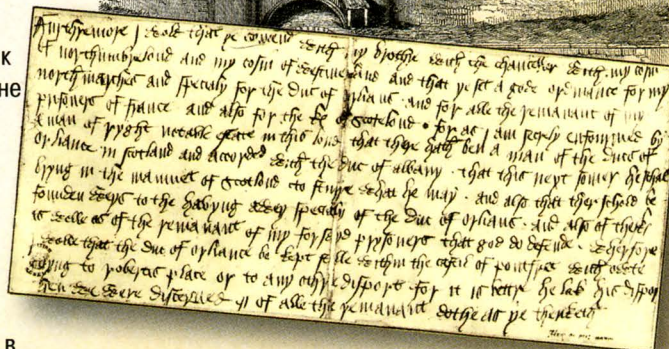 К
не
Furthremore I wold that ye comend with my brothre with the chancellor with my cosin
of northumbrelond and my cosin of westmerland and that ye set a gode ordinance for my
north marches and specialy for the duc of orlians and for alle the remanant of my
prisoners of france and also for the k of scotelond for as I am secrely enfourmed by
a man of ryght notable estate in this lond that there hath ben a man of the ducs of
orliance in scotland and accorded with the duc of albany that this next somer he schal
bryng in the mamuet of scotlond to sturre what he may and also that ther schold be
founden weys to the havyng awey specialy of the duc of orlians and also of the k
as welle as of the remanant of my forsayd prysoners that god do defende wherfore
I wolle that the duc of orliance be kept stille withyn the castil of pontefret with owte
goyng to robertis place or to any othre disport for it is bettre he lak his disport
then we were disceyved of alle the remanant dothe as ye thenketh
в